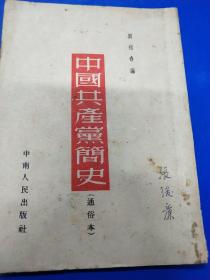 編
中國共產黨簡史
(通俗本)
中南人民出版社